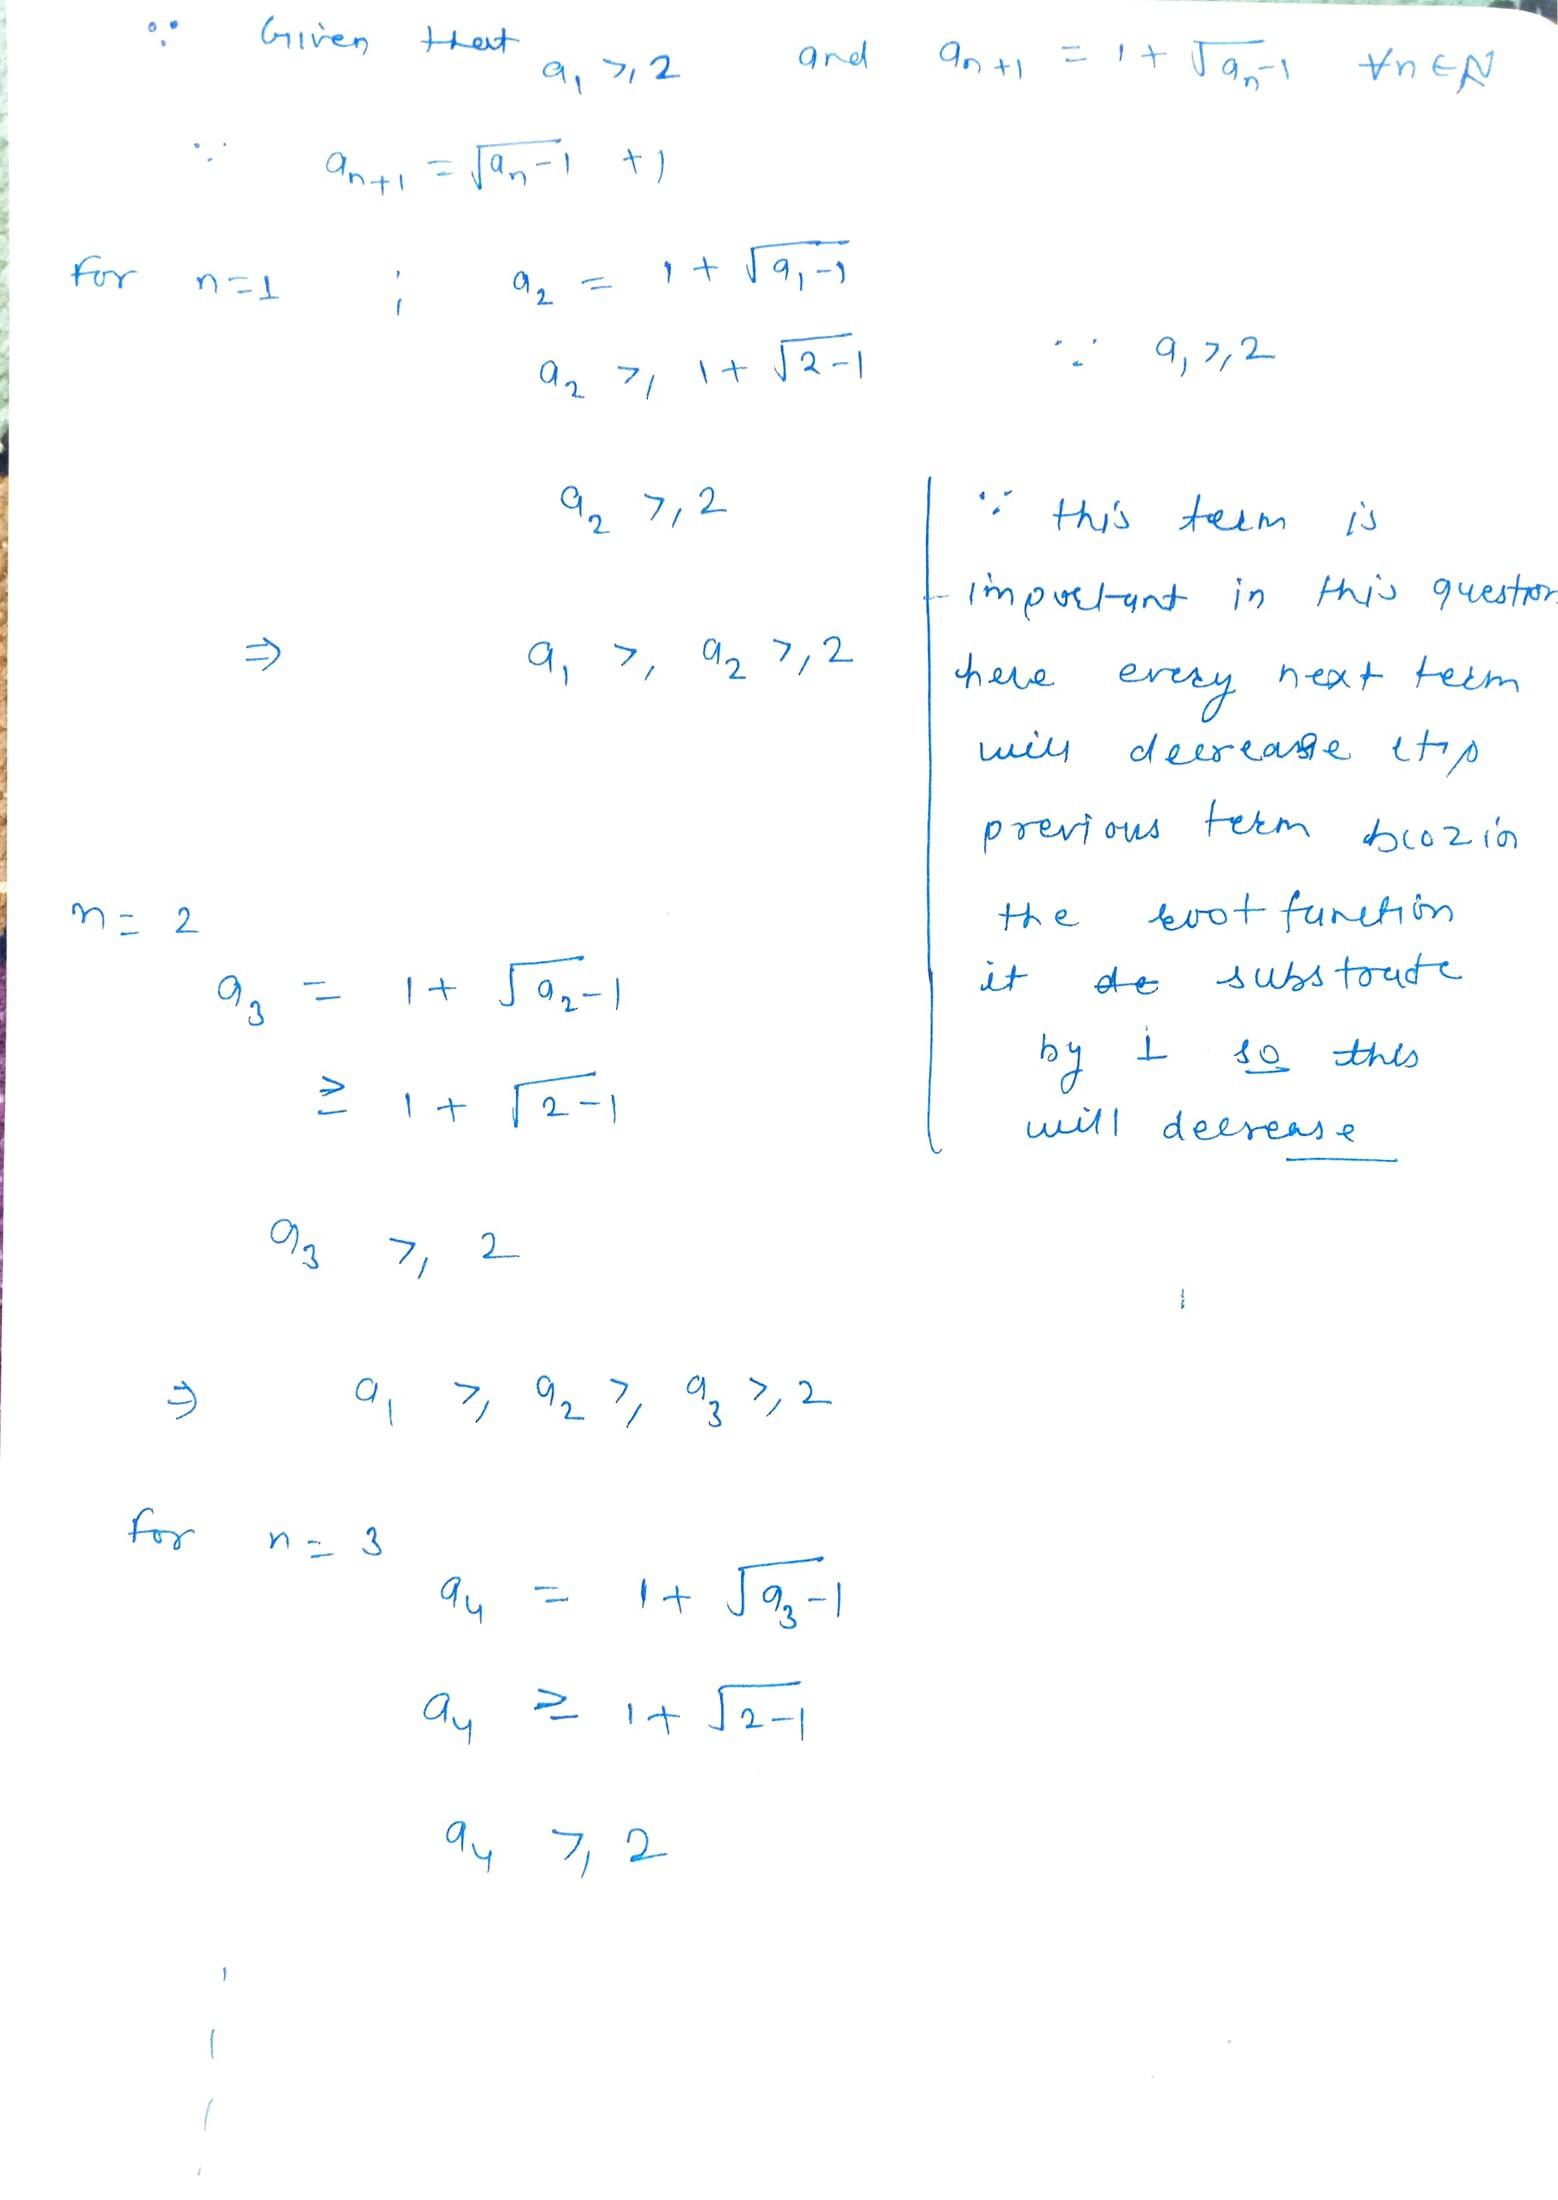 ∵ Given that a₁ ≥ 2 and aₙ₊₁ = 1 + √(aₙ-1) ∀n∈N
∵ aₙ₊₁ = √(aₙ-1) + 1
For n=1 ; a₂ = 1 + √(a₁-1)
a₂ ≥ 1 + √(2-1) ∵ a₁ ≥ 2
a₂ ≥ 2
⇒ a₁ ≥ a₂ ≥ 2
∵ this term is
important in this question
here every next term
will decrease
previous term
the root function
it substracte
by 1 so this
will decrease
n = 2
a₃ = 1 + √(a₂-1)
≥ 1 + √(2-1)
a₃ ≥ 2
⇒ a₁ ≥ a₂ ≥ a₃ ≥ 2
for n = 3
a₄ = 1 + √(a₃-1)
a₄ ≥ 1 + √(2-1)
a₄ ≥ 2